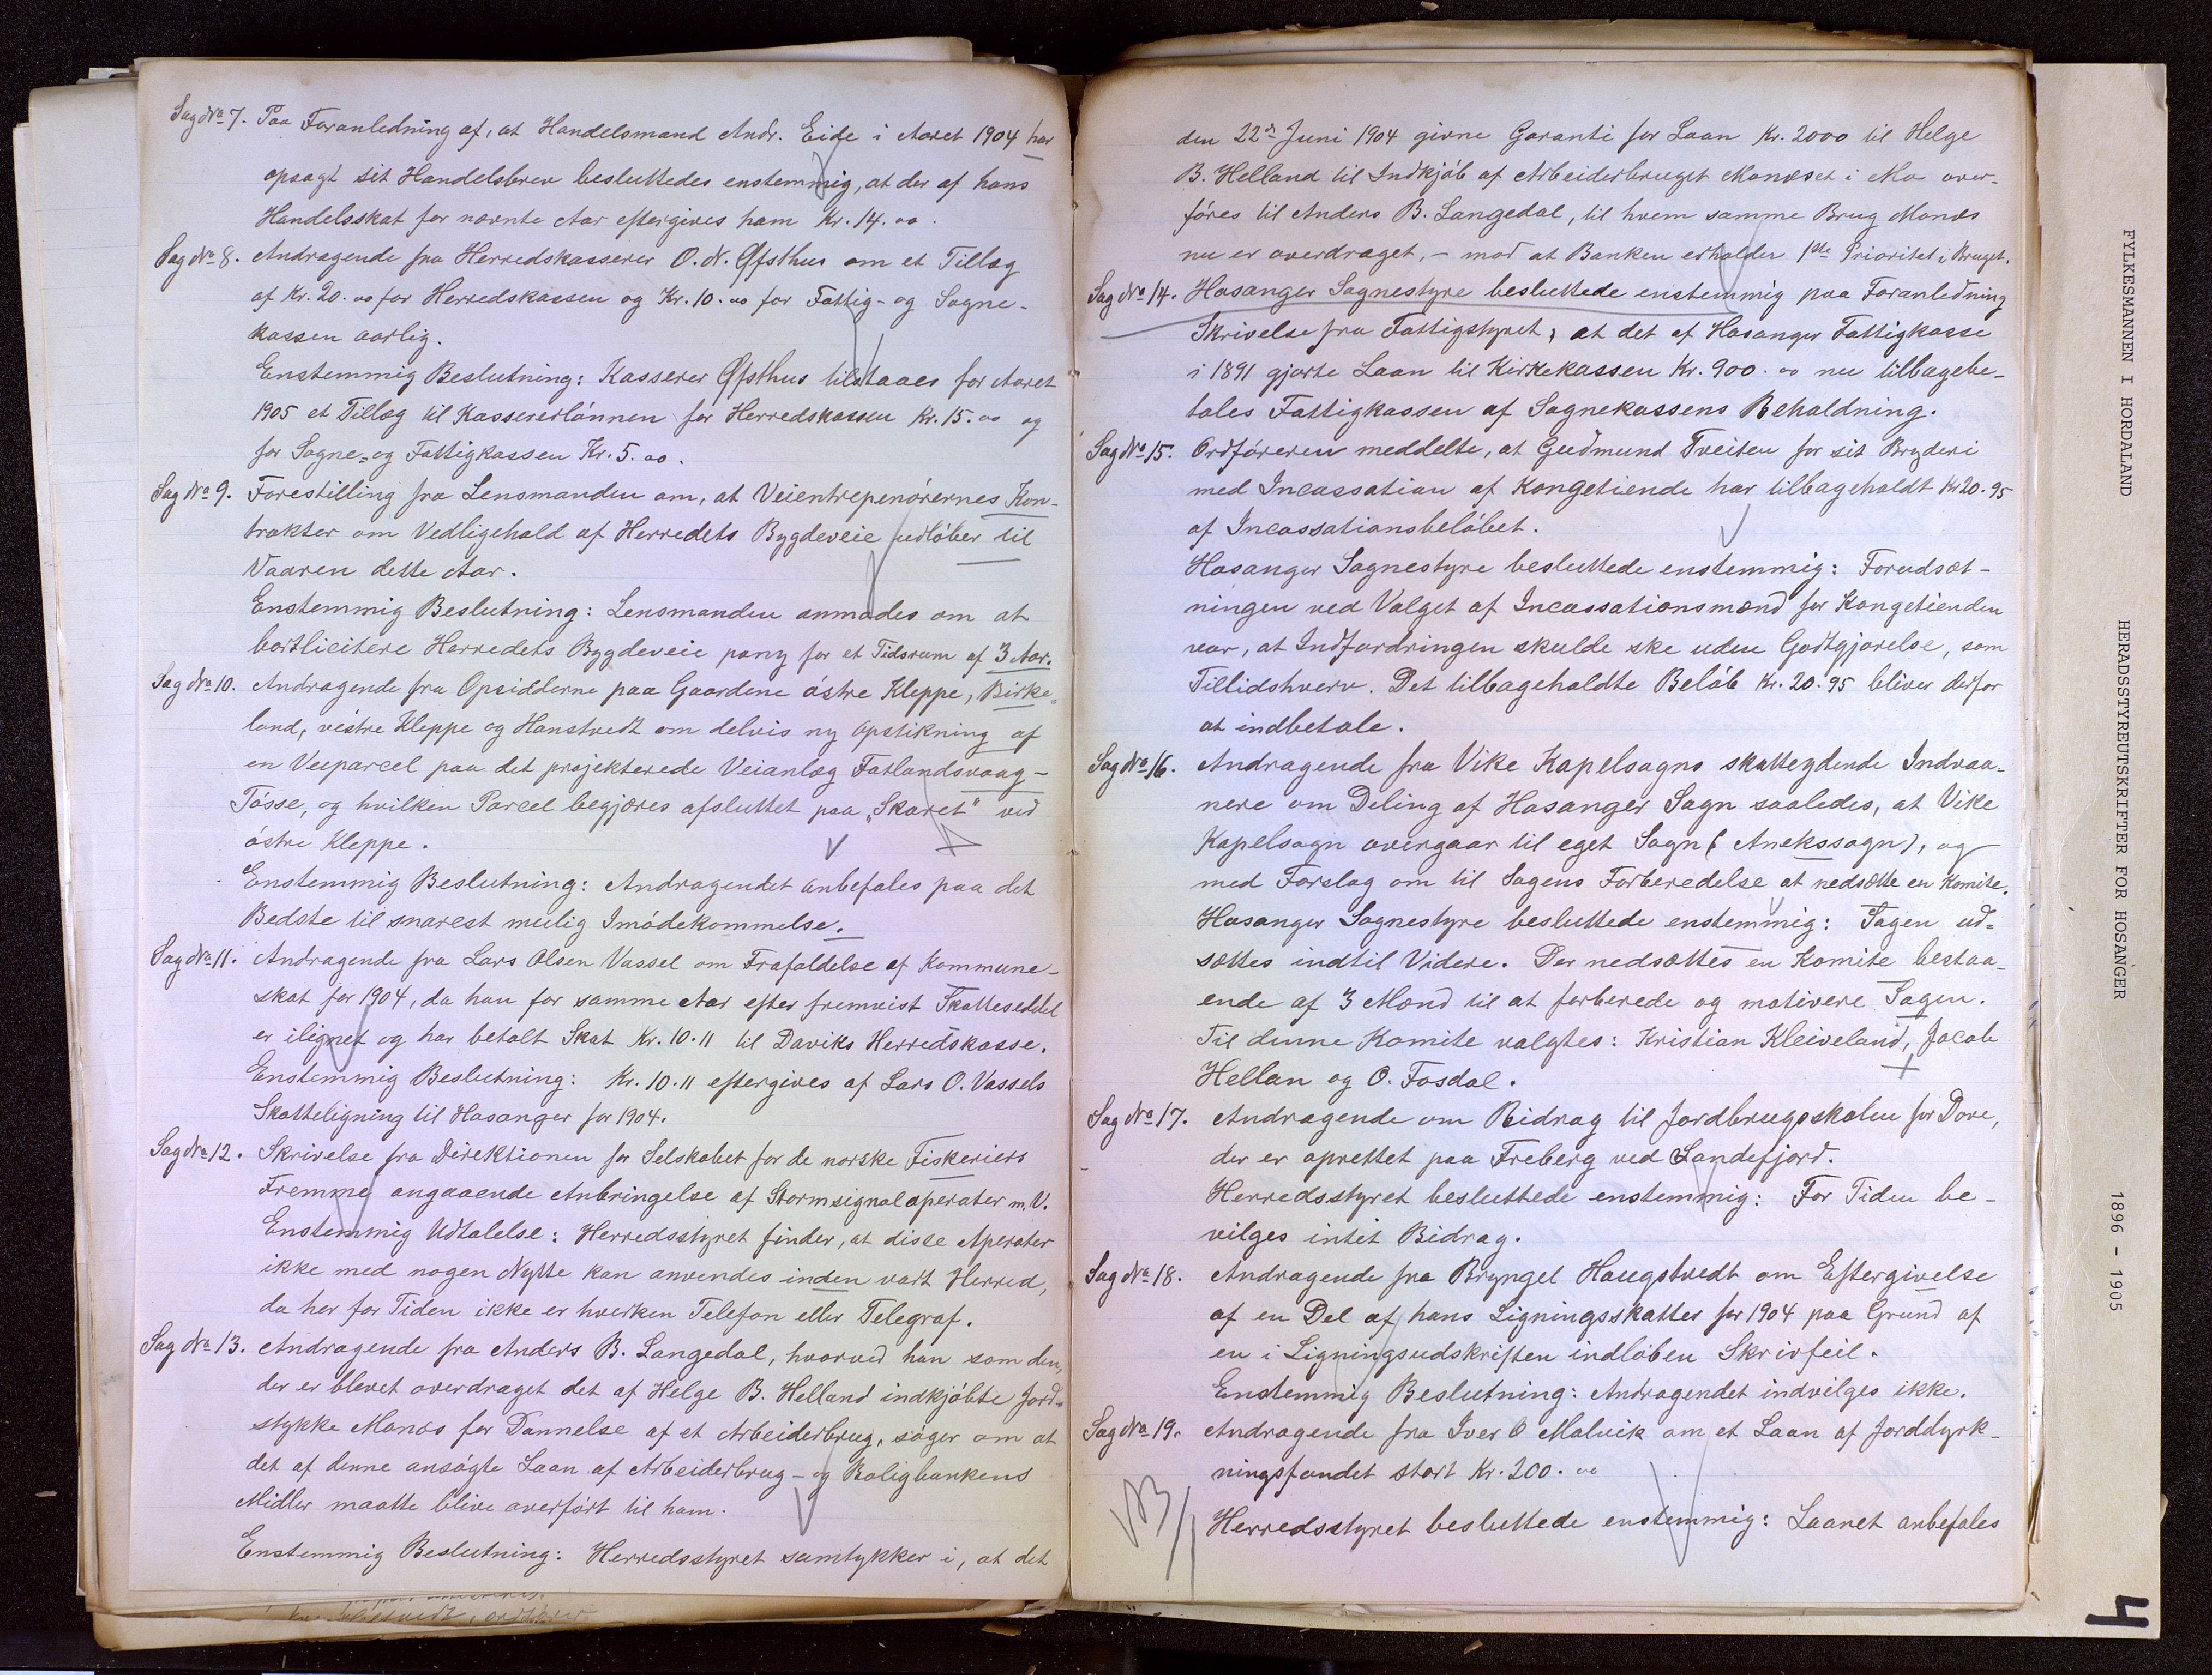 Sag No 7. Paa Foranledning af, at Handelsmand Andr. Eide i Aaret 1904 har
opsagt sit Handelsbrev besluttedes enstemmig, at der af hans
Handelsskat for nævnte Aar eftergives ham Kr. 14.00.
Sag No 8. Andragende fra Herredskasserer O. N. Øfsthus om et Tillæg
af Kr. 20.00 for Herredskassen og Kr. 10.00 for Fattig- og Sogne-
kassen aarlig.
Enstemmig Beslutning: Kasserer Øfsthus tilstaaes for Aaret
1905 et Tillæg til Kassererlønnen for Herredskassen Kr. 15.00 og
for Sogne- og Fattigkassen Kr. 5.00.
Sag No 9. Forestilling fra Lensmanden om, at Veientrepenørernes Kon-
trakter om Vedligehold af Herredets Bygdeveie udløber til
Vaaren dette Aar.
Enstemmig Beslutning: Lensmanden anmodes om at
bortlicitere Herredets Bygdeveie pany for et Tidsrum af 3 Aar.
Sag No 10. Andragende fra Opsidderne paa Gaardene østre Kleppe, Birke-
land, vestre Kleppe og Hanstvedt om delvis ny Opstikning af
en Veiparcel paa det projekterede Veianlæg Fatlandsvaag-
Tøsse, og hvilken Parcel begjæres afsluttet paa „Skaret" ved
østre Kleppe.
Enstemmig Beslutning: Andragendet anbefales paa det
Bedste til snarest mulig Imødekommelse.
Sag No 11. Andragende fra Lars Olsen Vassel om Frafaldelse af Kommune-
skat for 1904, da han for samme Aar efter fremvist Skatteseddel
er ilignet og har betalt Skat Kr. 10.11 til Daviks Herredskasse.
Enstemmig Beslutning: Kr. 10.11 eftergives af Lars O. Vassels
Skatteligning til Hosanger for 1904.
Sag No 12. Skrivelse fra Direktionen for Selskabet for de norske Fiskeriers
Fremme angaaende Anbringelse af Stormsignalaperater m. V.
Enstemmig Udtalelse: Herredsstyret finder, at disse Aperater
ikke med nogen Nytte kan anvendes inden vart Herred,
da her for Tiden ikke er hverken Telefon eller Telegraf.
Sag No 13. Andragende fra Anders B. Langedal, hvorved han som den,
der er blevet overdraget det af Helge B. Helland indkjøbte Jord-
stykke Monæs for Dannelse af et Arbeiderbrug, søger om at
det af denne ansøgte Laan af Arbeiderbrug- og Boligbankens
Midler maatte blive overført til ham.
Enstemmig Beslutning: Herredsstyret samtykker i, at det
den 22de Juni 1904 givne Garanti for Laan Kr. 2000 til Helge
B. Helland til Indkjøb af Arbeiderbruget Monæset i Mo over-
føres til Anders B. Langedal, til hvem samme Brug Monæs
nu er overdraget, - mod at Banken erholder 1ste Prioritet i Bruget.
Sag No 14. Hosanger Sognestyre besluttede enstemmig paa Foranledning
Skrivelse fra Fattigstyret, at det af Hosanger Fattigkasse
i 1891 gjorte Laan til Kirkekassen Kr. 900.00 nu tilbagebe-
tales Fattigkassen af Sognekassens Beholdning.
Sag No 15. Ordføreren meddelte, at Gudmund Tveiten for sit Bryderi
med Incassation af Kongetiende har tilbageholdt Kr 20.95
af Incassationsbeløbet.
Hosanger Sognestyre besluttede enstemmig: Forudsæt-
ningen ved Valget af Incassationsmænd for Kongetienden
var, at Indfordringen skulde ske uden Godtgjørelse, som
Tillidshverv. Det tilbageholdte Beløb Kr. 20.95 bliver derfor
at indbetale.
Sag No 16. Andragende fra Vike Kapelsogns skatteydende Indvaa-
nere om Deling af Hosanger Sogn saaledes, at Vike
Kapelsogn overgaar til eget Sogn (Anekssogn), og
med Forslag om til Sagens Forberedelse at nedsætte en Komite.
Hosanger Sognestyre besluttede enstemmig: Sagen ud-
sættes indtil Videre. Der nedsættes en Komite bestaa-
ende af 3 Mænd til at forberede og motivere Sagen.
Til denne Komite valgtes: Kristian Kleiveland, Jacob
Hellan og O. Fosdal.
Sag No 17. Andragende om Bidrag til Jordbrugsskolen for Døve,
der er oprettet paa Freberg ved Sandefjord.
Herredsstyret besluttede enstemmig: For Tiden be-
vilges intet Bidrag.
Sag No 18. Andragende fra Bryngel Haugstvedt om Eftergivelse
af en Del af hans Ligningsskatter for 1904 paa Grund af
en i Ligningsudskriften indløben Skrivfeil.
Enstemmig Beslutning: Andragendet indvilges ikke.
Sag No 19. Andragende fra Iver O Molvik om et Laan af Jorddyrk-
ningsfondet stort Kr. 200.00
Herredsstyret besluttede enstemmig: Laanet anbefales
FYLKESMANNEN I HORDALAND HERADSSTYREUTSKRIFTER FOR HOSANGER 1896 - 1905
4